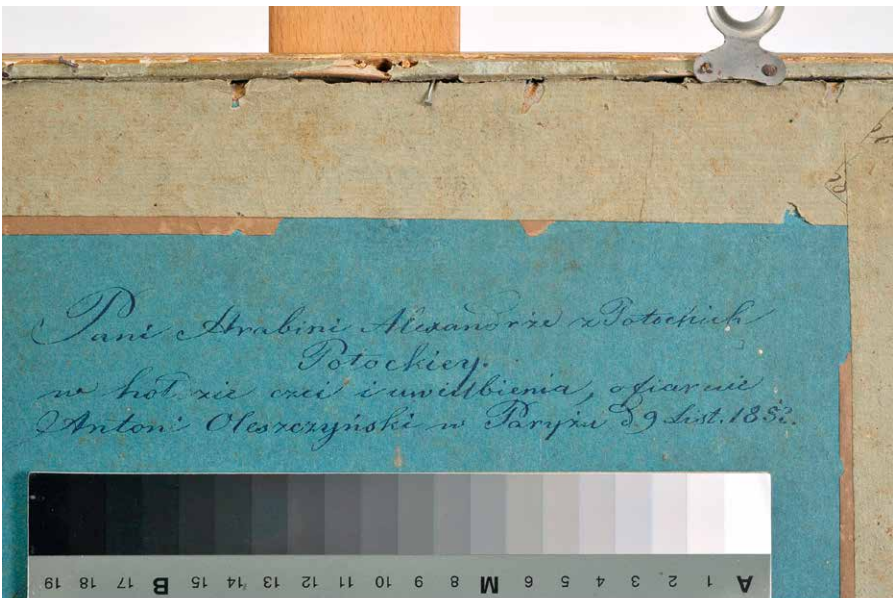 Pani Hrabini Alexandrze z Potockich
Potockiey.
w hołdzie czci i uwielbienia, ofiaruie
Antoni Oleszczyński w Paryżu D 9 List. 185
19 18 17 B 15 14 13 12 11 10 9 8 M 6 5 4 3 2 1 A